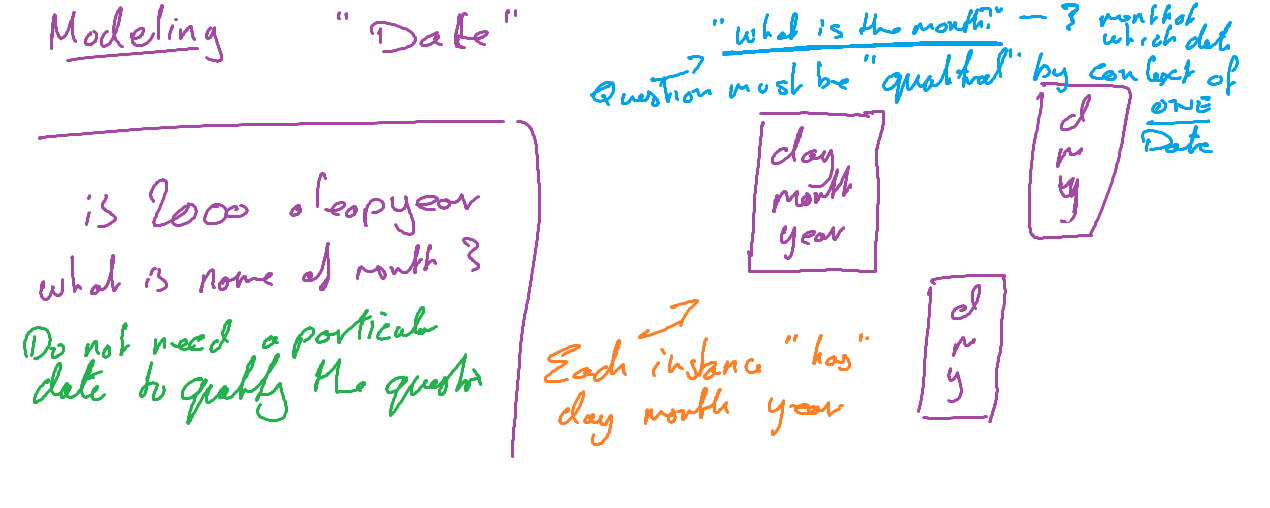 Modeling "Date"
"what is the month?" — ? month of
which date
Question must be "qualified" by context of
ONE
Date
day
month
year
d
m
y
is 2000 a leapyear
what is name of month ?
Do not need a particular
date to qualify the question
d
m
y
Each instance "has"
day month year